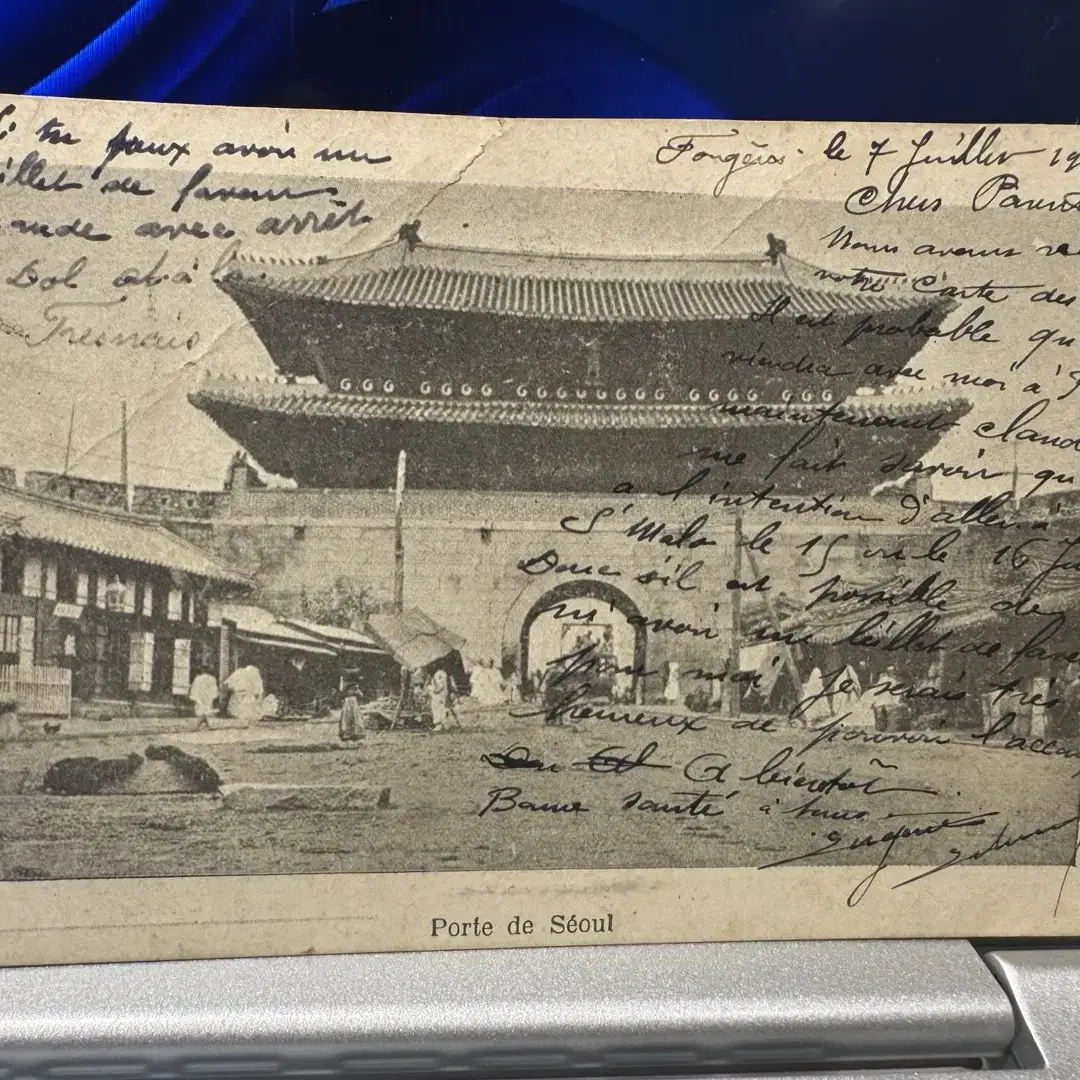 Si tu peux avoir un
billet de faveur
avec arrêt
Dol et à la
Fresnais
Fougères le 7 Juillet 19
Chers Parents
Nous avons
votre Carte des
Il est probable qu
viendra avec moi à
maintenant
me fait savoir qu
a l'intention d'aller à
St Malo le 15 ou le 16
Donc s'il est possible de
m'avoir un billet de
pour moi je serais très
heureux de pouvoir
A bientôt
Bonne santé à tous
Eugène
Porte de Séoul